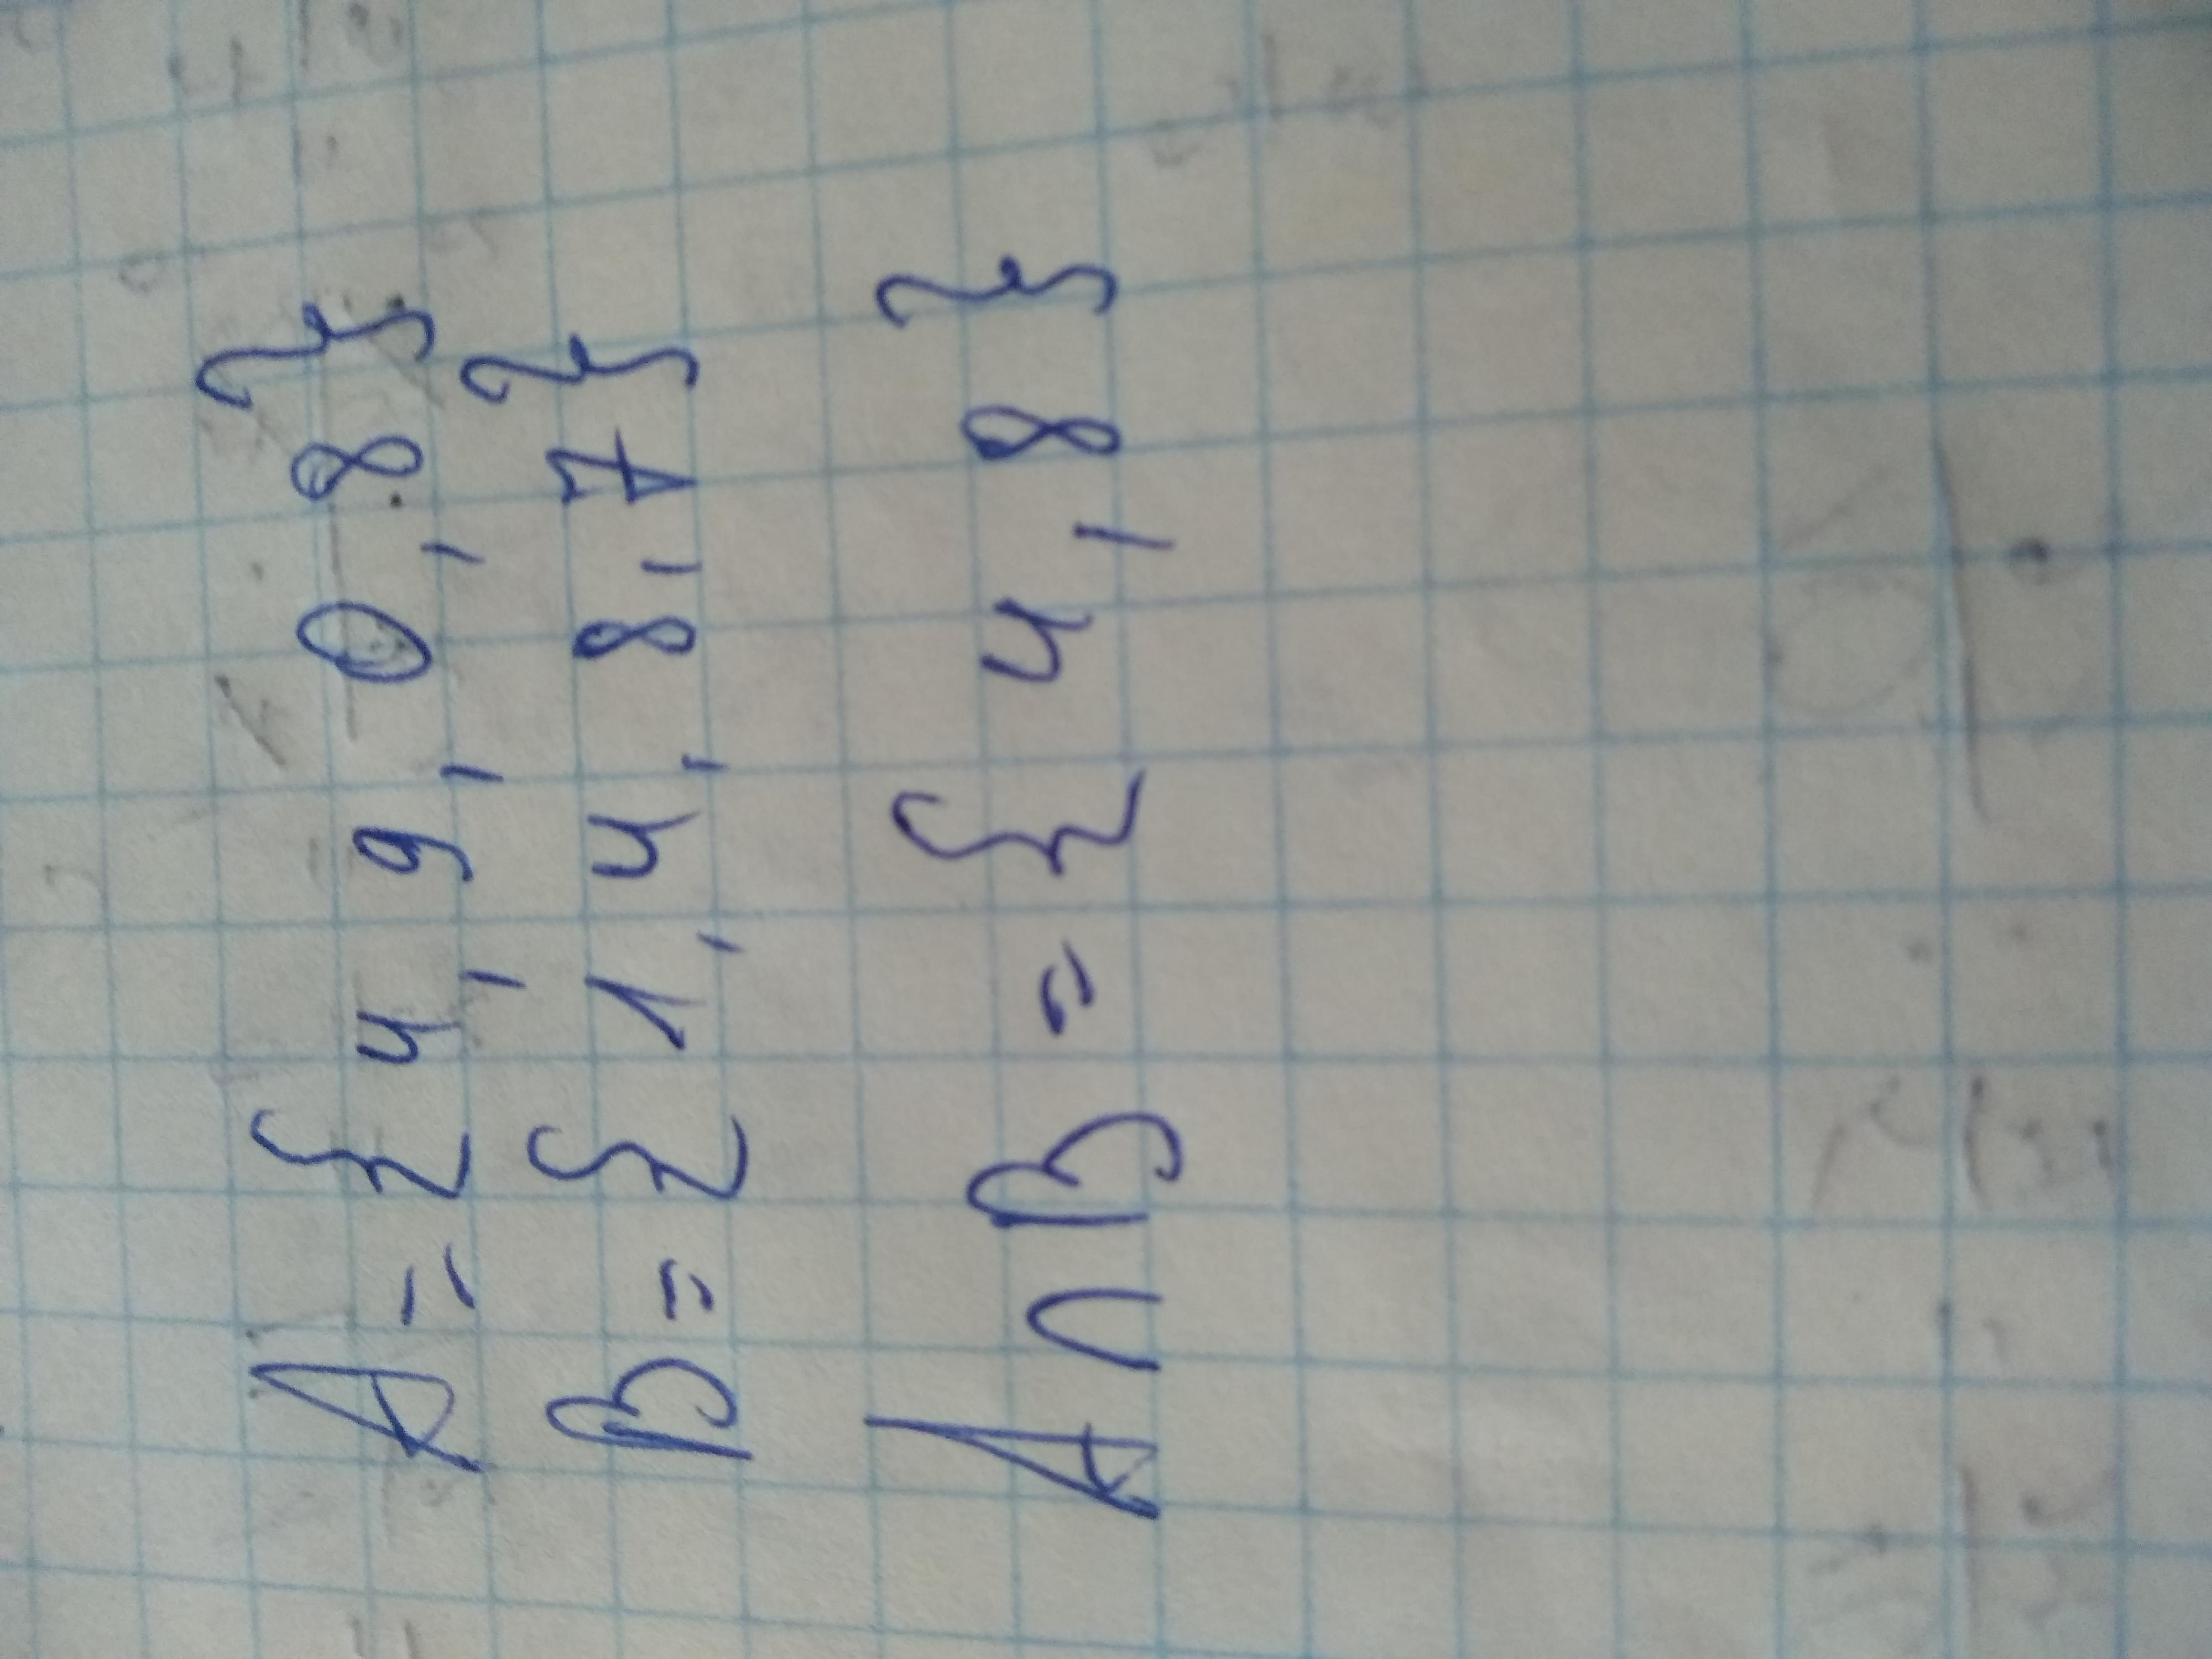 A = { 4, 9, 0, 8 }
B = { 1, 4, 8, 7 }
A ∩ B = { 4, 8 }